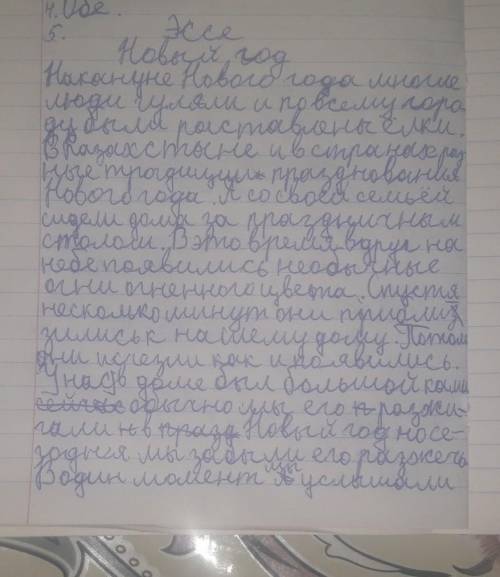 4. Обе.
5. Эссе
Новый год
Накануне Нового года многие
люди гуляли и по всему горо
ду были раставлены ёлки.
В Казахстыне и в странах раз
ные традиции празднования
Нового года. Я со своей семьёй
сидели дома за праздничным
столом. В это время вдруг на
небе появились необычные
огни огненного цвета. Спустя
несколько минут они прибли
зились к нашему дому. Потом
они исчезли как и появились.
У нас в доме был большой ками
сейчас обычно мы его разжи-
гали в празд Новый год но се-
годня мы забыли его разжечь
В один момент мы услышали